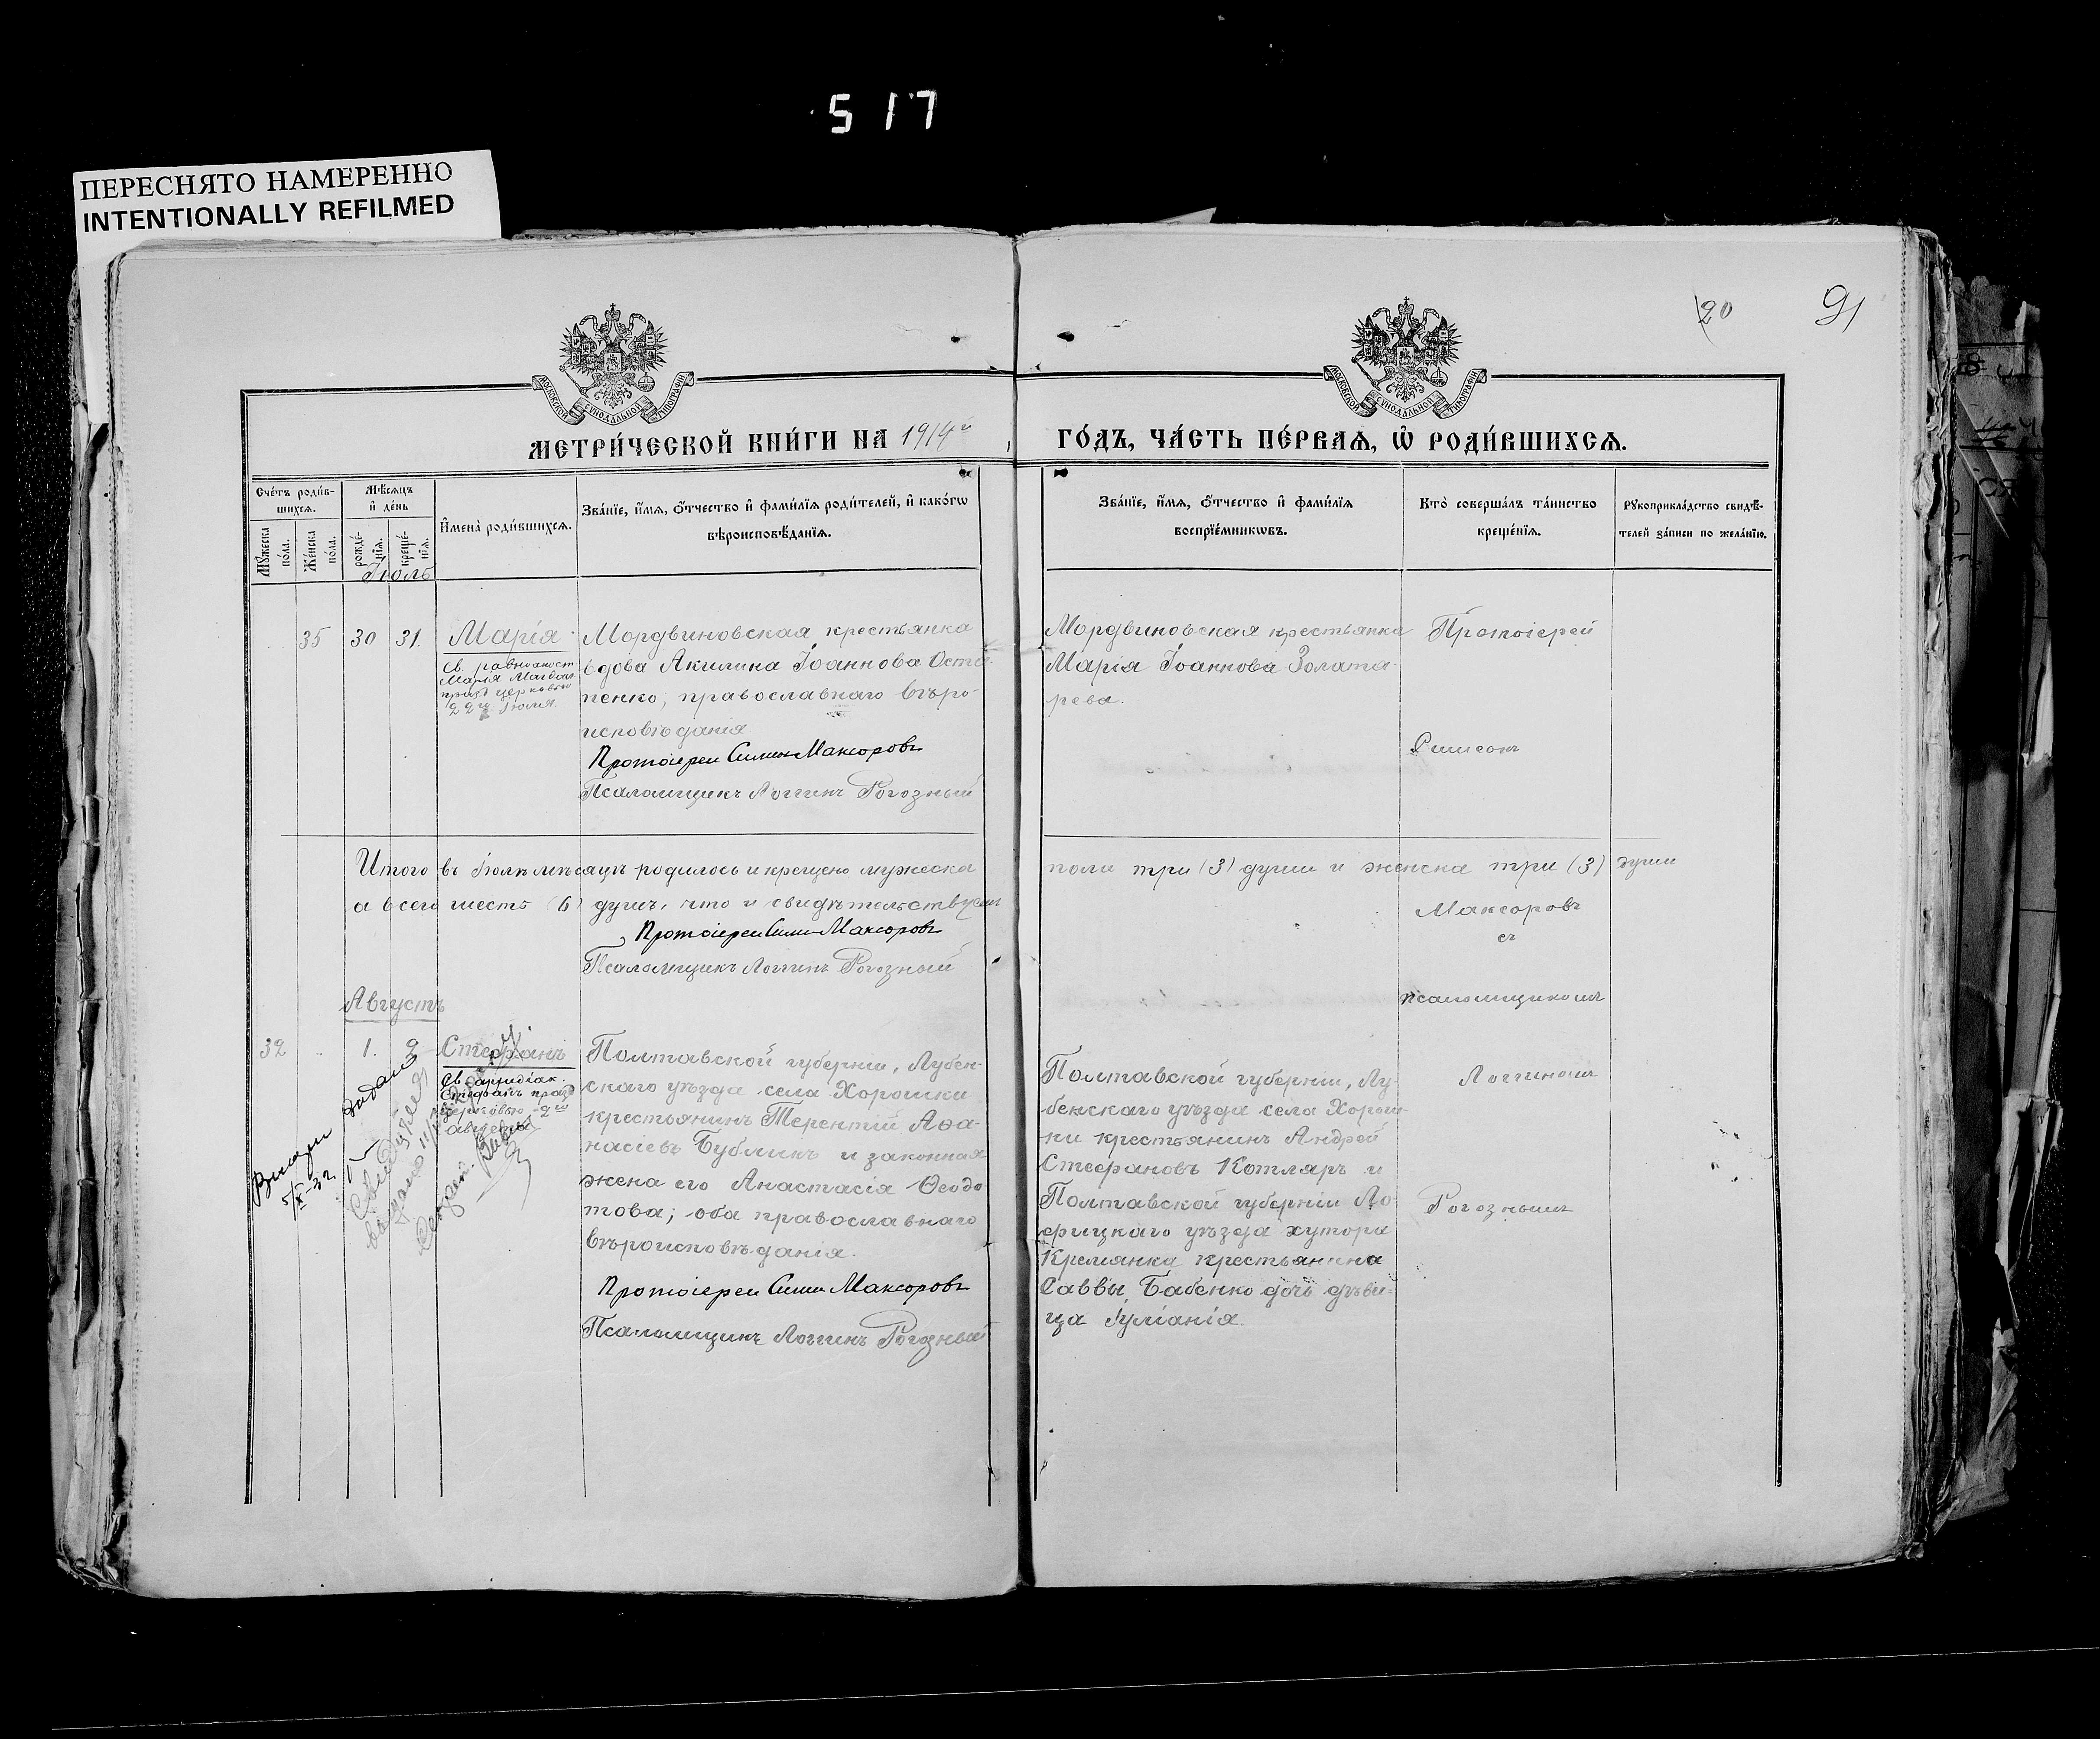 517
ПЕРЕСНЯТО НАМЕРЕННО
INTENTIONALLY REFILMED
20
91
МОСКОВСКОЙ СѴНОДАЛЬНОЙ ТИПОГРАФІИ
МОСКОВСКОЙ СѴНОДАЛЬНОЙ ТИПОГРАФІИ
МЕТРИ́ЧЕСКОЙ КНИ́ГИ НА 1914й
ГО́ДЪ, ЧА́СТЬ ПЕ́РВАѦ, Ѡ҆ РОДИ́ВШИХСѦ.
Сче́тъ роди́в-
шихсѧ.
Мꙋ́жеска по́ла.
Же́нска по́ла.
Мѣ́сѧцъ
и҆ де́нь
рожде́-
нїѧ.
креще́-
нїѧ.
И҆мена̀ роди́вшихсѧ.
Зва́нїе, и҆́мѧ, ѻ҆́тчество и҆ фами́лїѧ роди́телей, и҆ како́гѡ
вѣроисповѣ́данїѧ.
Зва́нїе, и҆́мѧ, ѻ҆́тчество и҆ фами́лїѧ
воспрїе́мникѡвъ.
Кто̀ соверша́лъ та́инство
креще́нїѧ.
Рꙋкоприкла́дство свидѣ́-
телей за́писи по жела́нїю.
Іюль
35 30 31. Марія
Св. равноапост
Марія Магдал
празд церковью
22го Іюля.
Мордвиновская крестьянка
вдова Акилина Іоаннова Оста-
пенко, православнаго вѣро-
исповѣданія
Протоіерей Симеон Максоровъ
Псаломщикъ Логгинъ Рогозный
Мордвиновская крестьянка
Марія Іоаннова Золота-
рева.
Протоіерей
Симеонъ
Итого въ Іюлѣ мѣсяцѣ родилось и крещено мужеска
пола три (3) души и женска три (3) души
а всего шесть (6) душъ, что и свидѣтельствуемъ
Протоіерей Симеон Максоровъ
Псаломщикъ Логгинъ Рогозный
Максоровъ
съ
псаломщикомъ
Августъ
32 1. 2 Стефанъ
Св. архидіак.
Стефанъ празд
церковью 2го
августа
5/X-32
Полтавской губерніи, Лубен-
скаго уѣзда села Хорошки
крестьянинъ Терентій Аѳа-
насіевъ Бубликъ и законная
жена его Анастасія Ѳеодо-
това; оба православнаго
вѣроисповѣданія.
Протоіерей Симеон Максоровъ
Псаломщикъ Логгинъ Рогозный
Полтавской губерніи, Лу-
бенскаго уѣзда села Хорош-
ки крестьянинъ Андрей
Стефановъ Котляръ и
Полтавской губерніи Ло-
фицкаго уѣзда хутора
Кремянка крестьянина
Саввы Бабенко дочь дѣви-
ца Іуліанія.
Логгиномъ
Рогознымъ